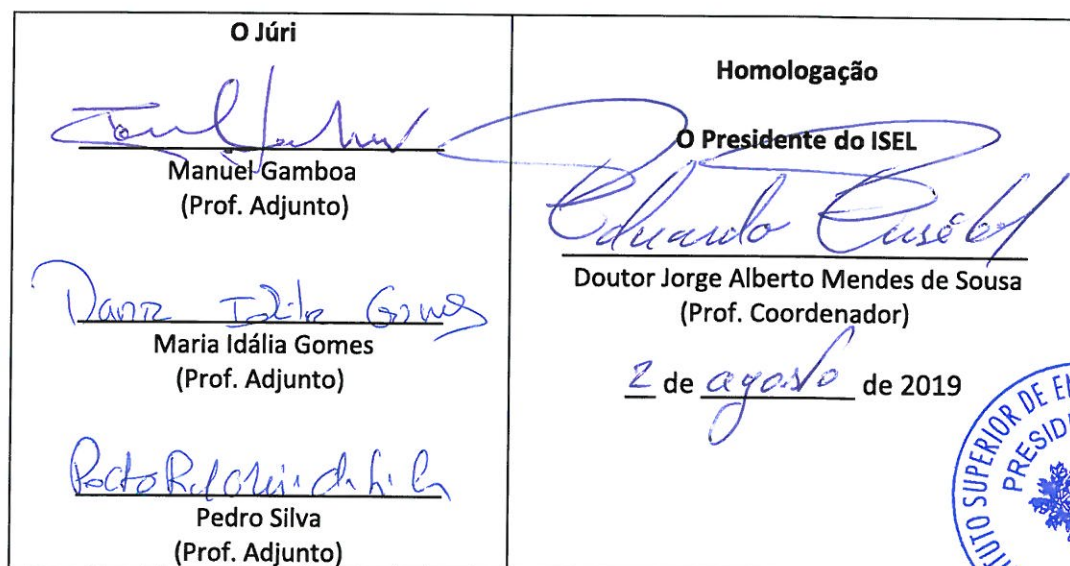 O Júri
Manuel Gamboa
(Prof. Adjunto)
Maria Idália Gomes
(Prof. Adjunto)
Pedro Silva
(Prof. Adjunto)
Homologação
O Presidente do ISEL
Eduardo Eusébio
Doutor Jorge Alberto Mendes de Sousa
(Prof. Coordenador)
2 de agosto de 2019
SUPERIOR DE